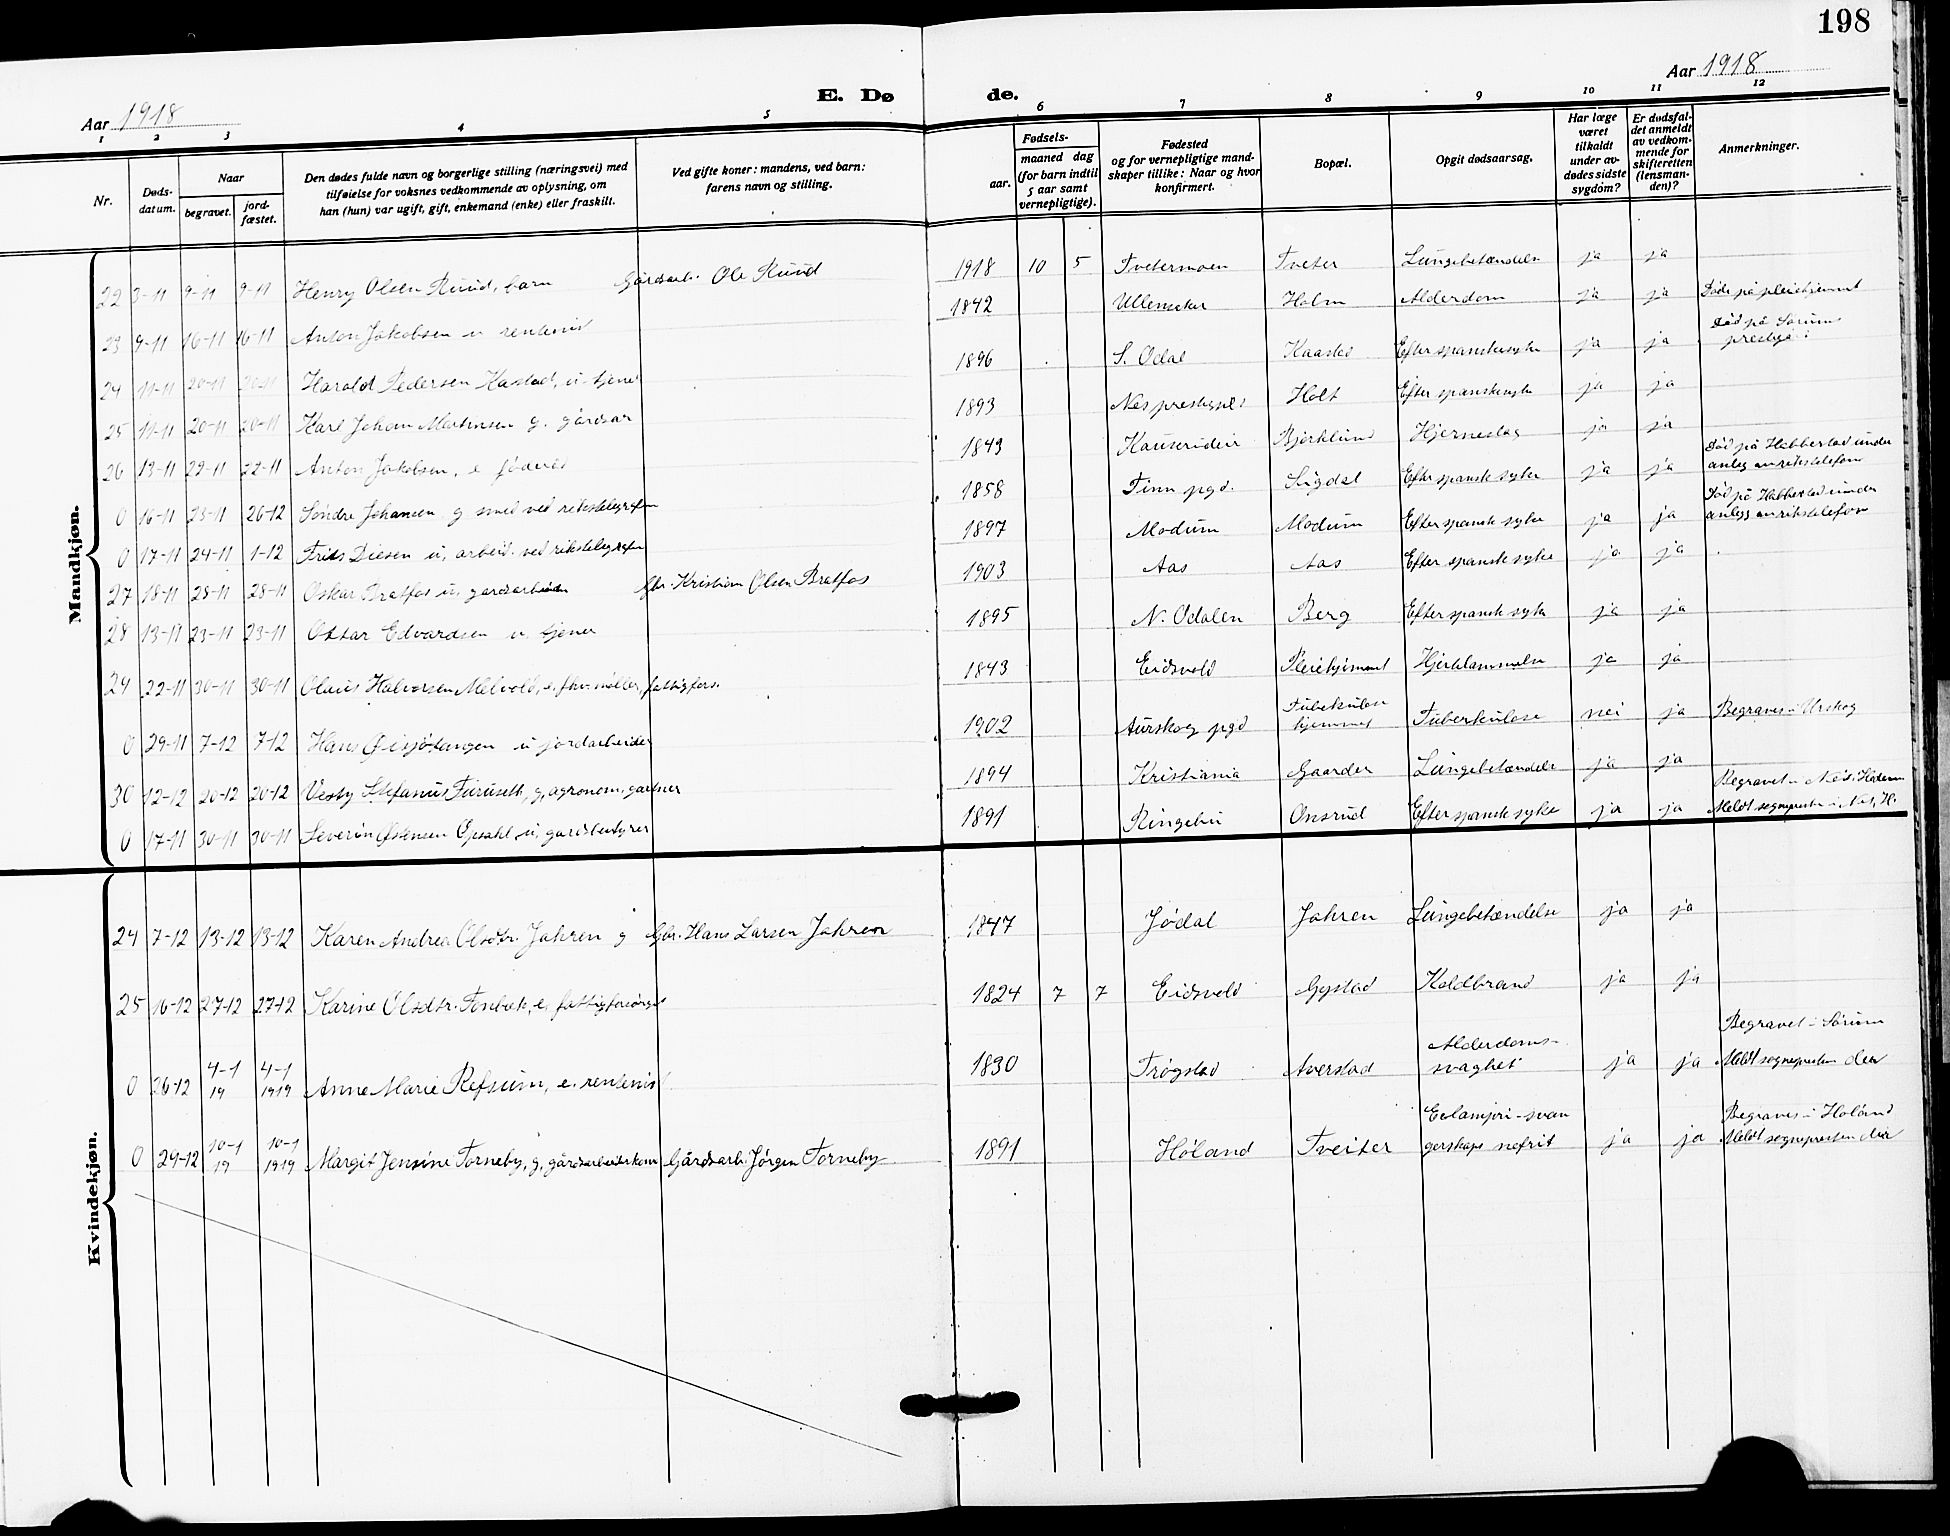 198
Aar 1918
E. Døde.
Aar 1918
1 2 3 4 5 6 7 8 9 10 11 12
Nr.
Døds-
datum.
Naar
begravet.
jord-
fæstet.
Den dødes fulde navn og borgerlige stilling (næringsvei) med
tilføielse for voksnes vedkommende av oplysning, om
han (hun) var ugift, gift, enkemand (enke) eller fraskilt.
Ved gifte koner: mandens, ved barn:
farens navn og stilling.
Fødsels-
aar.
maaned dag
(for barn indtil
5 aar samt
vernepligtige).
Fødested
og for vernepligtige mand-
skaper tillike: Naar og hvor
konfirmert.
Bopæl.
Opgit dødsaarsag.
Har læge
været
tilkaldt
under av-
dødes sidste
sygdom?
Er dødsfal-
det anmeldt
av vedkom-
mende for
skifteretten
(lensman-
den)?
Anmerkninger.
Mandkjøn.
22 3-11 9-11 9-11 Henry Olsen Ruud, barn Gårdsarb. Ole Ruud 1918 10 5 Tvetermoen Tveter Lungebetændelse ja ja
23 9-11 16-11 16-11 Anton Jakobsen u rentenist 1842 Ullensaker Holm Alderdom ja ja Død på pleiehjemmet
24 11-11 20-11 20-11 Harald Pedersen Kastad, u. tjener 1896 S. Odal Kaastad Efter spanskesyke ja ja Død på Sørum
25 11-11 20-11 20-11 Karl Johan Martinsen g. gårdsar 1893 Nes prestegjeld Holt Efter spanskesyke ja ja
26 13-11 22-11 22-11 Anton Jakobsen, e føderåd 1843 Kauserudeie Bjørklund Hjerneslag ja ja
0 16-11 25-11 26-12 Søndre Johansen g smed ved rikstelegrafen 1858 Tinn pgd. Sigdal Efter spansk syke ja ja Død på Habberstad under
anleg av rikstelefon
0 17-11 24-11 1-12 Frits Diesen u, arbeid. ved rikstelegrafen 1897 Modum Modum Efter spansk syke ja ja Død på Habberstad under
anlegg av rikstelefon
27 18-11 28-11 28-11 Oskar Bratfos u, gårdsarbeider Gbr. Kristian Olsen Bratfos 1903 Aas Aas Efter spansk syke ja ja
28 13-11 23-11 23-11 Ottar Edvardsen u, tjener 1895 N. Odalen Berg Efter spansk syke ja ja
29 22-11 30-11 30-11 Olaus Halvorsen Melvold, e. fhv. møller, fattigfors. 1843 Eidsvold Pleiehjemmet Hjertelammelse ja ja
0 29-11 7-12 7-12 Hans u jordarbeider 1902 Aurskog pgd Tuberkulose
hjemmet Tuberkulose nei ja Begraves i Urskog
30 12-12 20-12 20-12 Vesty Stefanus Furuseth, g, agronom, gartner 1894 Kristiania Gaarder Lungebetændelse ja ja
0 17-11 30-11 30-11 Severin Østensen Opsahl, u, gårdsbestyrer 1891 Ringebu Onsrud Efter spansk syke ja ja Begravet i Nes, Hedem
Meldt sogneprest i Nes, H.
Kvindekjøn.
24 7-12 13-12 13-12 Karen Andrea Olsdtr. Jahren g Gbr. Hans Larsen Jahren 1847 Jødal Jahren Lungebetændelse ja ja
25 16-12 27-12 27-12 Karine Olsdtr. Fonbæk, e, fattigforsørget 1824 7 7 Eidsvold Gystad Koldbrand ja ja
0 26-12 4-1
19 4-1
1919 Anne Marie Refsum, e. rentenist 1830 Trøgstad Averstad Alderdoms-
svaghet ja ja Begravet i Sørum
Meldt sognepresten der
0 29-12 10-1
19 10-1
1919 Margit Jensine Torneby, g, gårdsarbeiderkone Gårdsarb. Jørgen Torneby 1891 Høland Tveiter Eclampsi-svan
gerskaps nefrit ja ja Begraves i Høland
Meldt sognepresten der